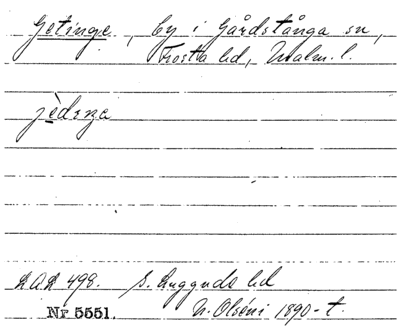 Getinge, by i Gårdstånga sn,
Frosta hd, Malm. l.
jèdıŋa
LAL 498. S. Luggude hd
Nr 5551. N. Olséni 1890-t.